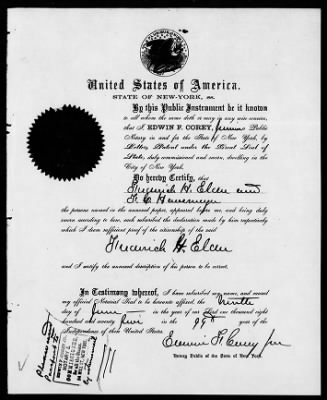 United States of America.
STATE OF NEW-YORK, ss.
By this Public Instrument be it known
to all whom the same doth or may in any wise concern,
that I EDWIN F. COREY, junior Public
Notary in and for the State of New York, by
Letters Patent under the Great Seal of
State, duly commissioned and sworn, dwelling in the
City of New York,
Do hereby Certify, that
Frederick H. Elder and
F. C. Havemeyer
the persons named in the annexed paper, appeared before me, and being duly
sworn according to law, each subscribed the declaration made by him respectively
which I deem sufficient proof of the citizenship of the said
Frederick H. Elder
and I certify the annexed description of his person to be correct.
In Testimony whereof, I have subscribed my name, and caused
my official Notarial Seal to be hereunto affixed, the Ninth
day of June in the year of our Lord one thousand eight
hundred and seventy five in the 99th year of the
Independence of these United States.
Edwin F. Corey jun
Notary Public of the State of New York.